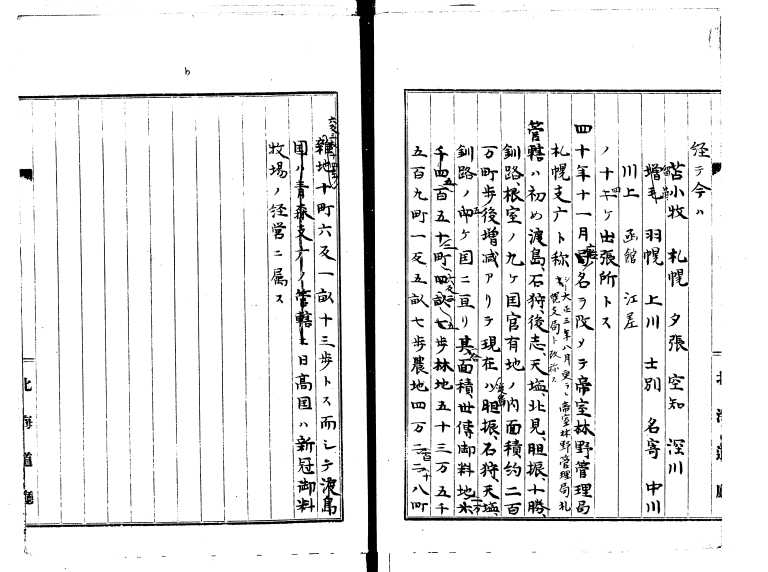 経テ今ハ
苫小牧 札幌 夕張 空知 深川
増毛 羽幌 上川 士別 名寄 中川
川上 函館 江差
ノ十四ケ出張所トス
四十年十一月局名ヲ改メテ帝室林野管理局
札幌支庁ト称シ大正三年八月更ラニ帝室林野管理局札幌支局ト改称ス
管轄ハ初メ渡島、石狩、後志、天塩、北見、胆振、十勝、
釧路、根室ノ九ケ国官有地ノ内面積約二百
万町歩後増減アリテ現在ハ胆振、石狩、天塩、
釧路ノ ケ国ニ亘リ其面積、世傳御料地
千四百五十町 畝 歩林地五十三万五千
五百九町一反五畝七歩農地四万 八町
雑地十町六反一畝十三歩トス而シテ渡島
国ハ青森支庁ノ管轄ニ日高国ハ新冠御料
牧場ノ経営ニ属ス
北海道廳
北海道廳